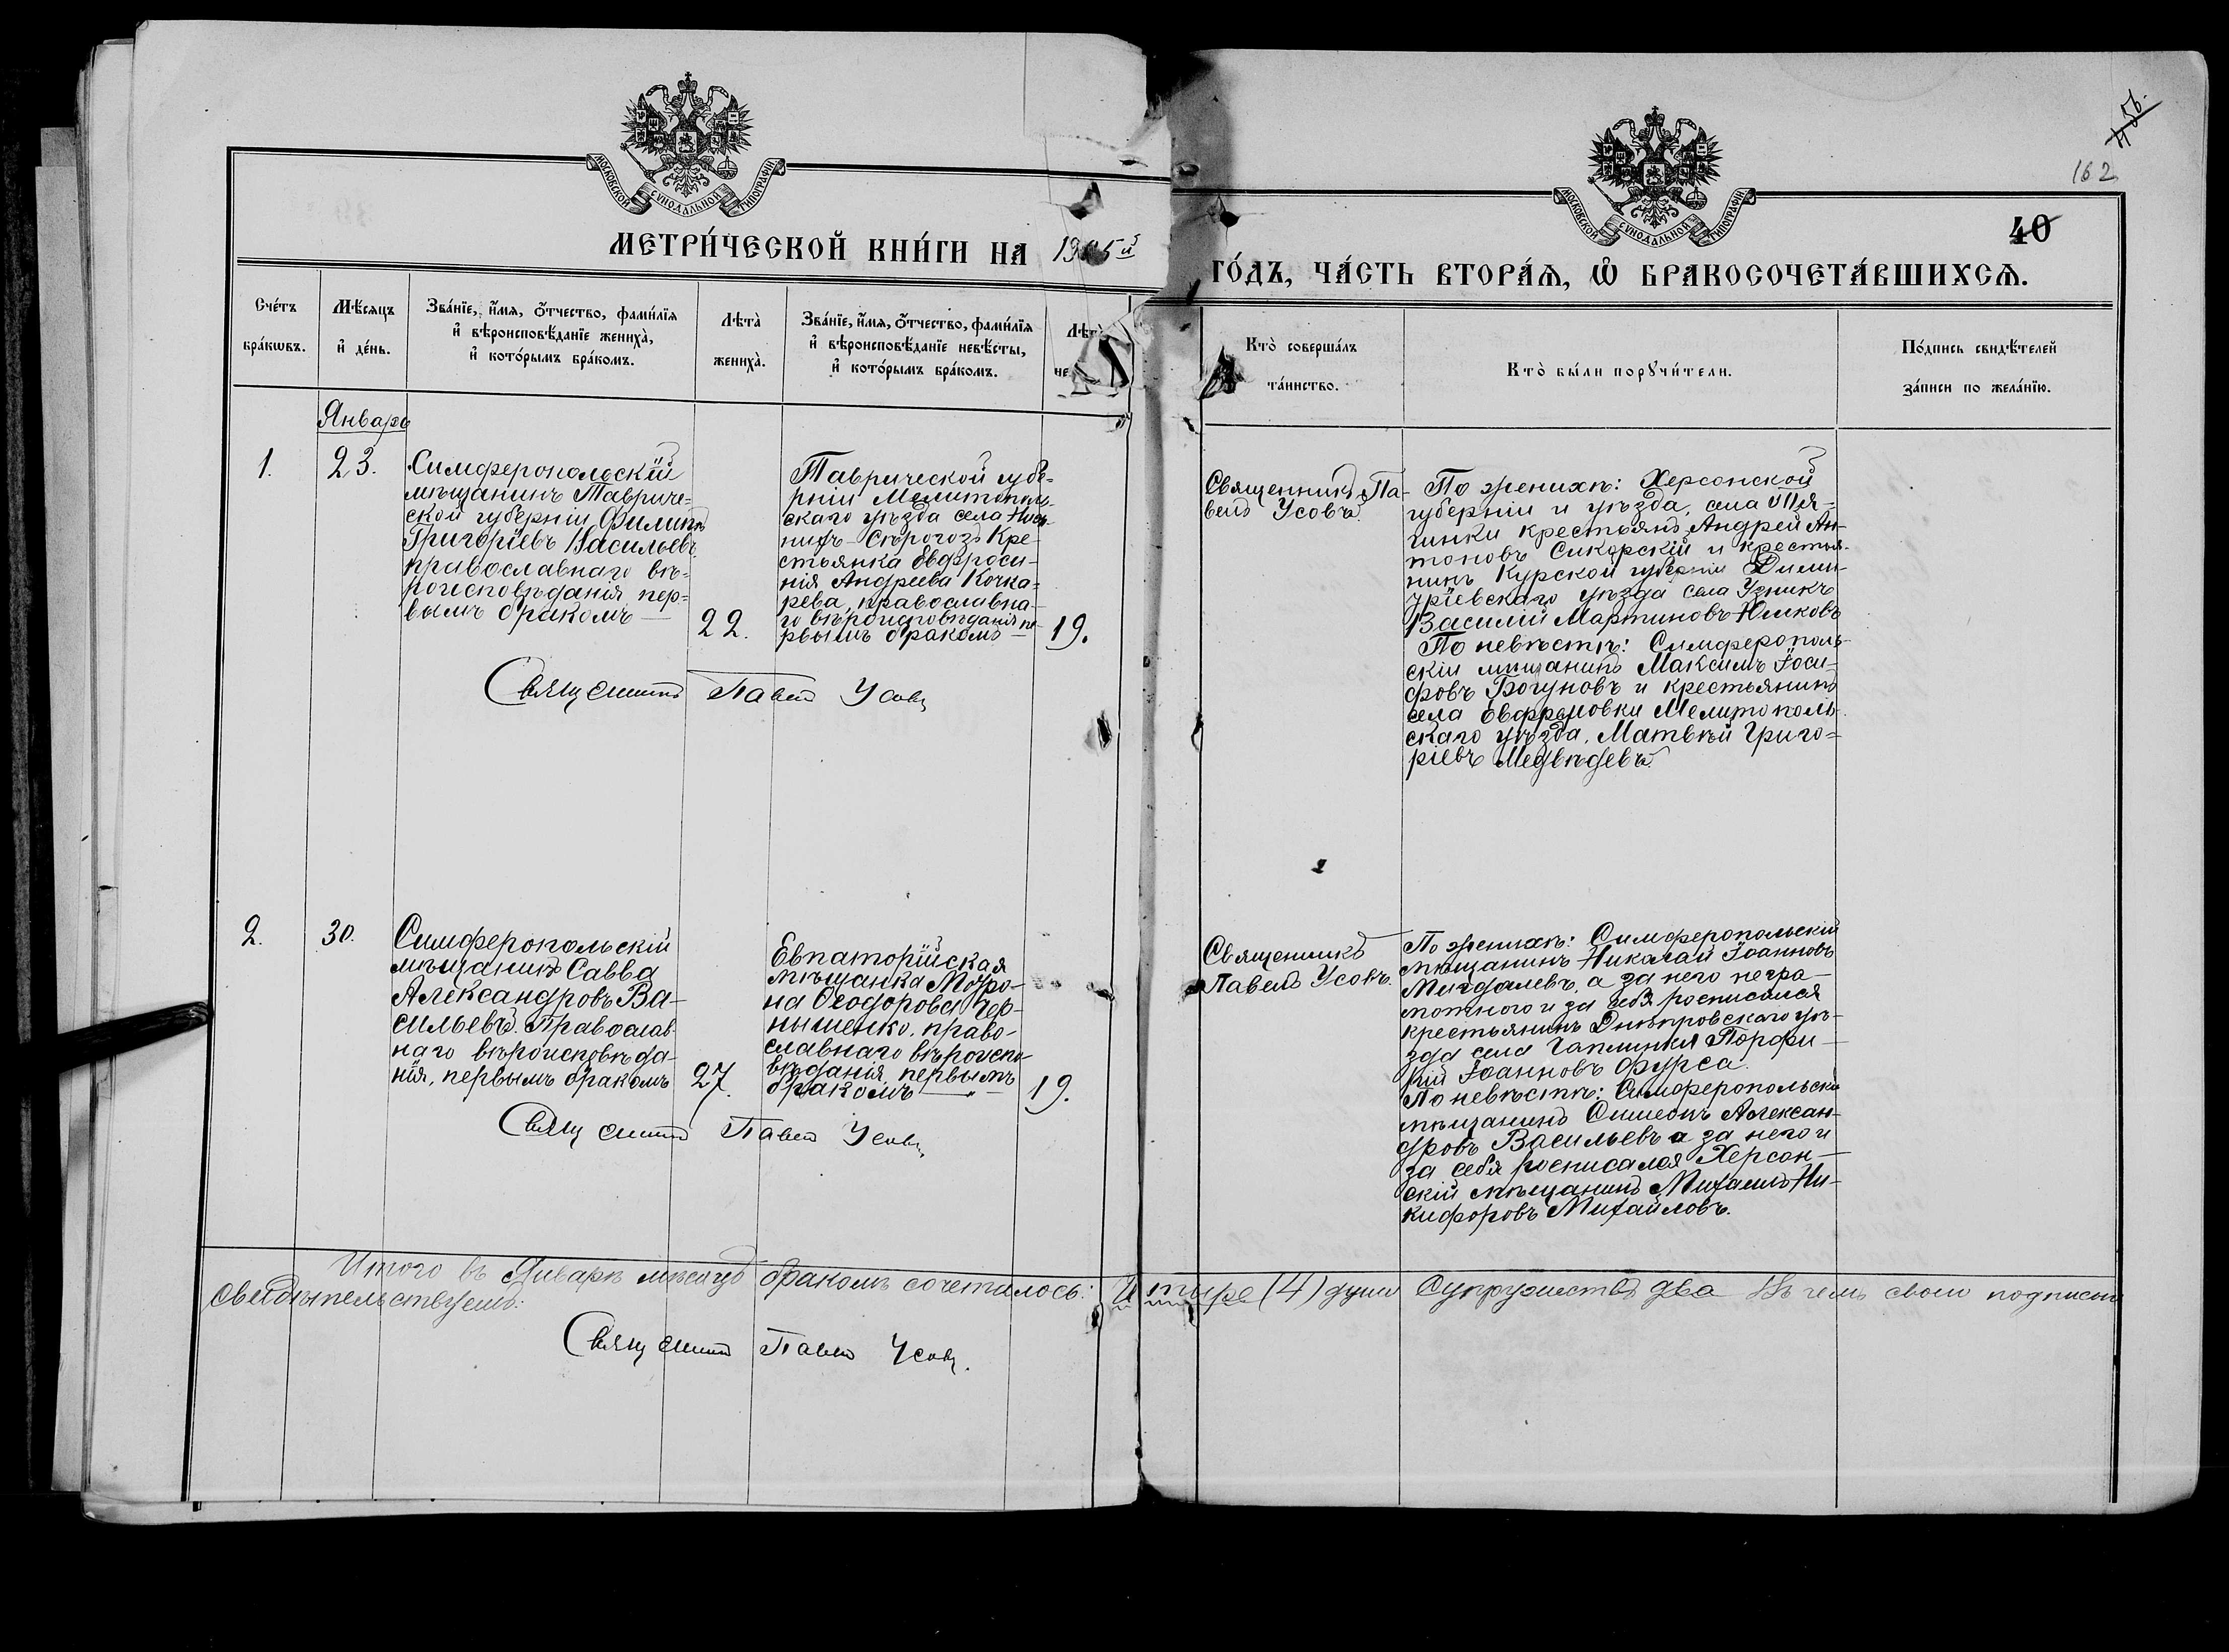 156.
162
40
МОСКОВСКОЙ СѴНОДАЛЬНОЙ ТИПОГРАФІИ
МОСКОВСКОЙ СѴНОДАЛЬНОЙ ТИПОГРАФІИ
МЕТРИ́ЧЕСКОЙ КНИ́ГИ НА 1905й ГО́ДЪ, ЧА́СТЬ ВТОРА́Ѧ, Ѽ БРАКОСОЧЕТА́ВШИХСѦ.
Сче́тъ
бра́кѡвъ.
Мѣ́сяцъ
и҆ де́нь.
Зва́нїе, и҆́мя, ѻ҆́тчество, фами́лїя
и҆ вѣроисповѣ́данїе жениха̀,
и҆ кото́рымъ бра́комъ.
Лѣта̀
жениха̀.
Зва́нїе, и҆́мя, ѻ҆́тчество, фами́лїя
и҆ вѣроисповѣ́данїе невѣ́сты,
и҆ кото́рымъ бра́комъ.
Лѣта̀
не
Кто̀ соверша́лъ
та́инство.
Кто̀ бы́ли порꙋчи́тели.
По́дпись свидѣ́телей
за́писи по жела́нїю.
Январь
1.
23.
Симферопольскій
мѣщанинъ Тавриче=
ской губерніи Филиппъ
Григоріевъ Васильевъ
православнаго вѣ=
роисповѣданія пер=
вымъ бракомъ —
22.
Таврической губе=
рніи Мелитополь-
скаго уѣзда села Ниж-
нихъ-Сѣрогозъ Кре-
стьянка Евфроси-
нія Андреева Кочка=
рева, православна-
го вѣроисповѣданія пе-
рвымъ бракомъ —
19.
Священникъ Па-
велъ Усовъ.
По женихѣ: Херсонской
губерніи и уѣзда, села
крестьянъ Андрей Ан-
тоновъ Сикорскій и крестья-
нинъ Курской губерніи Дими-
тріевскаго уѣзда села Узникъ
Василій Мартиновъ Юшковъ
По невѣстѣ: Симферополь-
скій мѣщанинъ Максимъ Іоси-
фовъ Богуновъ и крестьянинъ
села Ефремовки Мелитополь-
скаго уѣзда, Матвѣй Григо=
ріевъ Медвѣдевъ.
Священникъ Павелъ Усовъ
2.
30.
Симферопольскій
мѣщанинъ Савва
Александровъ Ва-
сильевъ. Православ-
наго вѣроисповѣда-
нія, первымъ бракомъ
27.
Евпаторійская
мѣщанка Матро-
на Ѳеодорова Чер-
нышенко, право-
славнаго вѣроиспо-
вѣданія, первымъ
бракомъ —
19.
Священникъ
Павелъ Усовъ.
По женихѣ: Симферопольскій
мѣщанинъ Николай Іоанновъ
Мигдалевъ, а за него негра-
мотного и за себя росписался
крестьянинъ Днѣпровскаго уѣ-
зда села Чаплинки Порфи-
рій Іоанновъ Фурса.
По невѣстѣ: Симферопольскій
мѣщанинъ Симеонъ Алексан-
дровъ Васильевъ а за него и
за себя росписался Херсон-
скій мѣщанинъ Михаилъ Ни-
кифоровъ Михайловъ.
Священникъ Павелъ Усовъ
Итого въ Январѣ мѣсяцѣ бракомъ сочеталось: четыре (4) души Супружествъ два Въ чемъ своею подписью
свидѣтельствуемъ:
Священникъ Павелъ Усовъ.